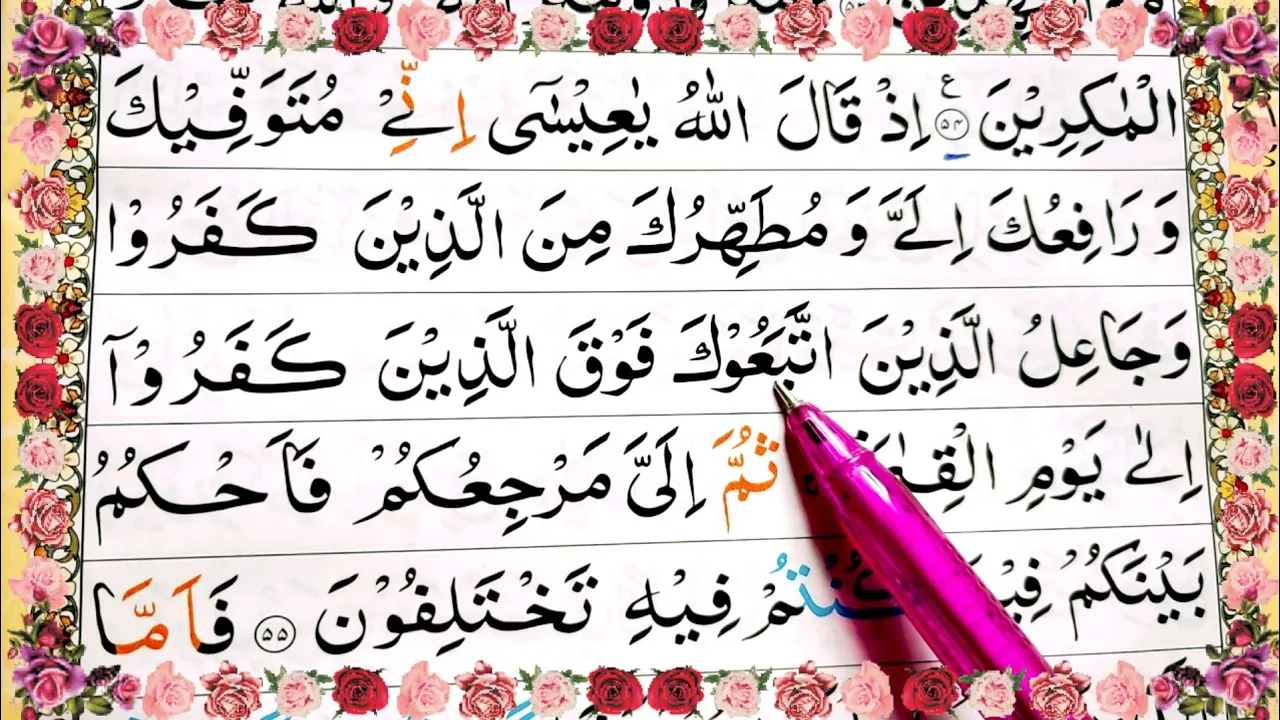 الْمٰكِرِيْنَ ۝۵۴ ع اِذْ قَالَ اللّٰهُ يٰعِيْسٰٓى اِنِّيْ مُتَوَفِّيْكَ
وَ رَافِعُكَ اِلَيَّ وَ مُطَهِّرُكَ مِنَ الَّذِيْنَ كَفَرُوْا
وَ جَاعِلُ الَّذِيْنَ اتَّبَعُوْكَ فَوْقَ الَّذِيْنَ كَفَرُوْۤا
اِلٰى يَوْمِ ثُمَّ اِلَيَّ مَرْجِعُكُمْ فَاَحْكُمُ
بَيْنَكُمْ كُنْتُمْ فِيْهِ تَخْتَلِفُوْنَ ۝۵۵ فَاَمَّا